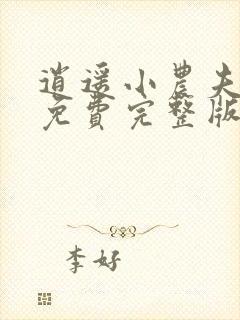 逍遥小農夫
免費完整版
李好